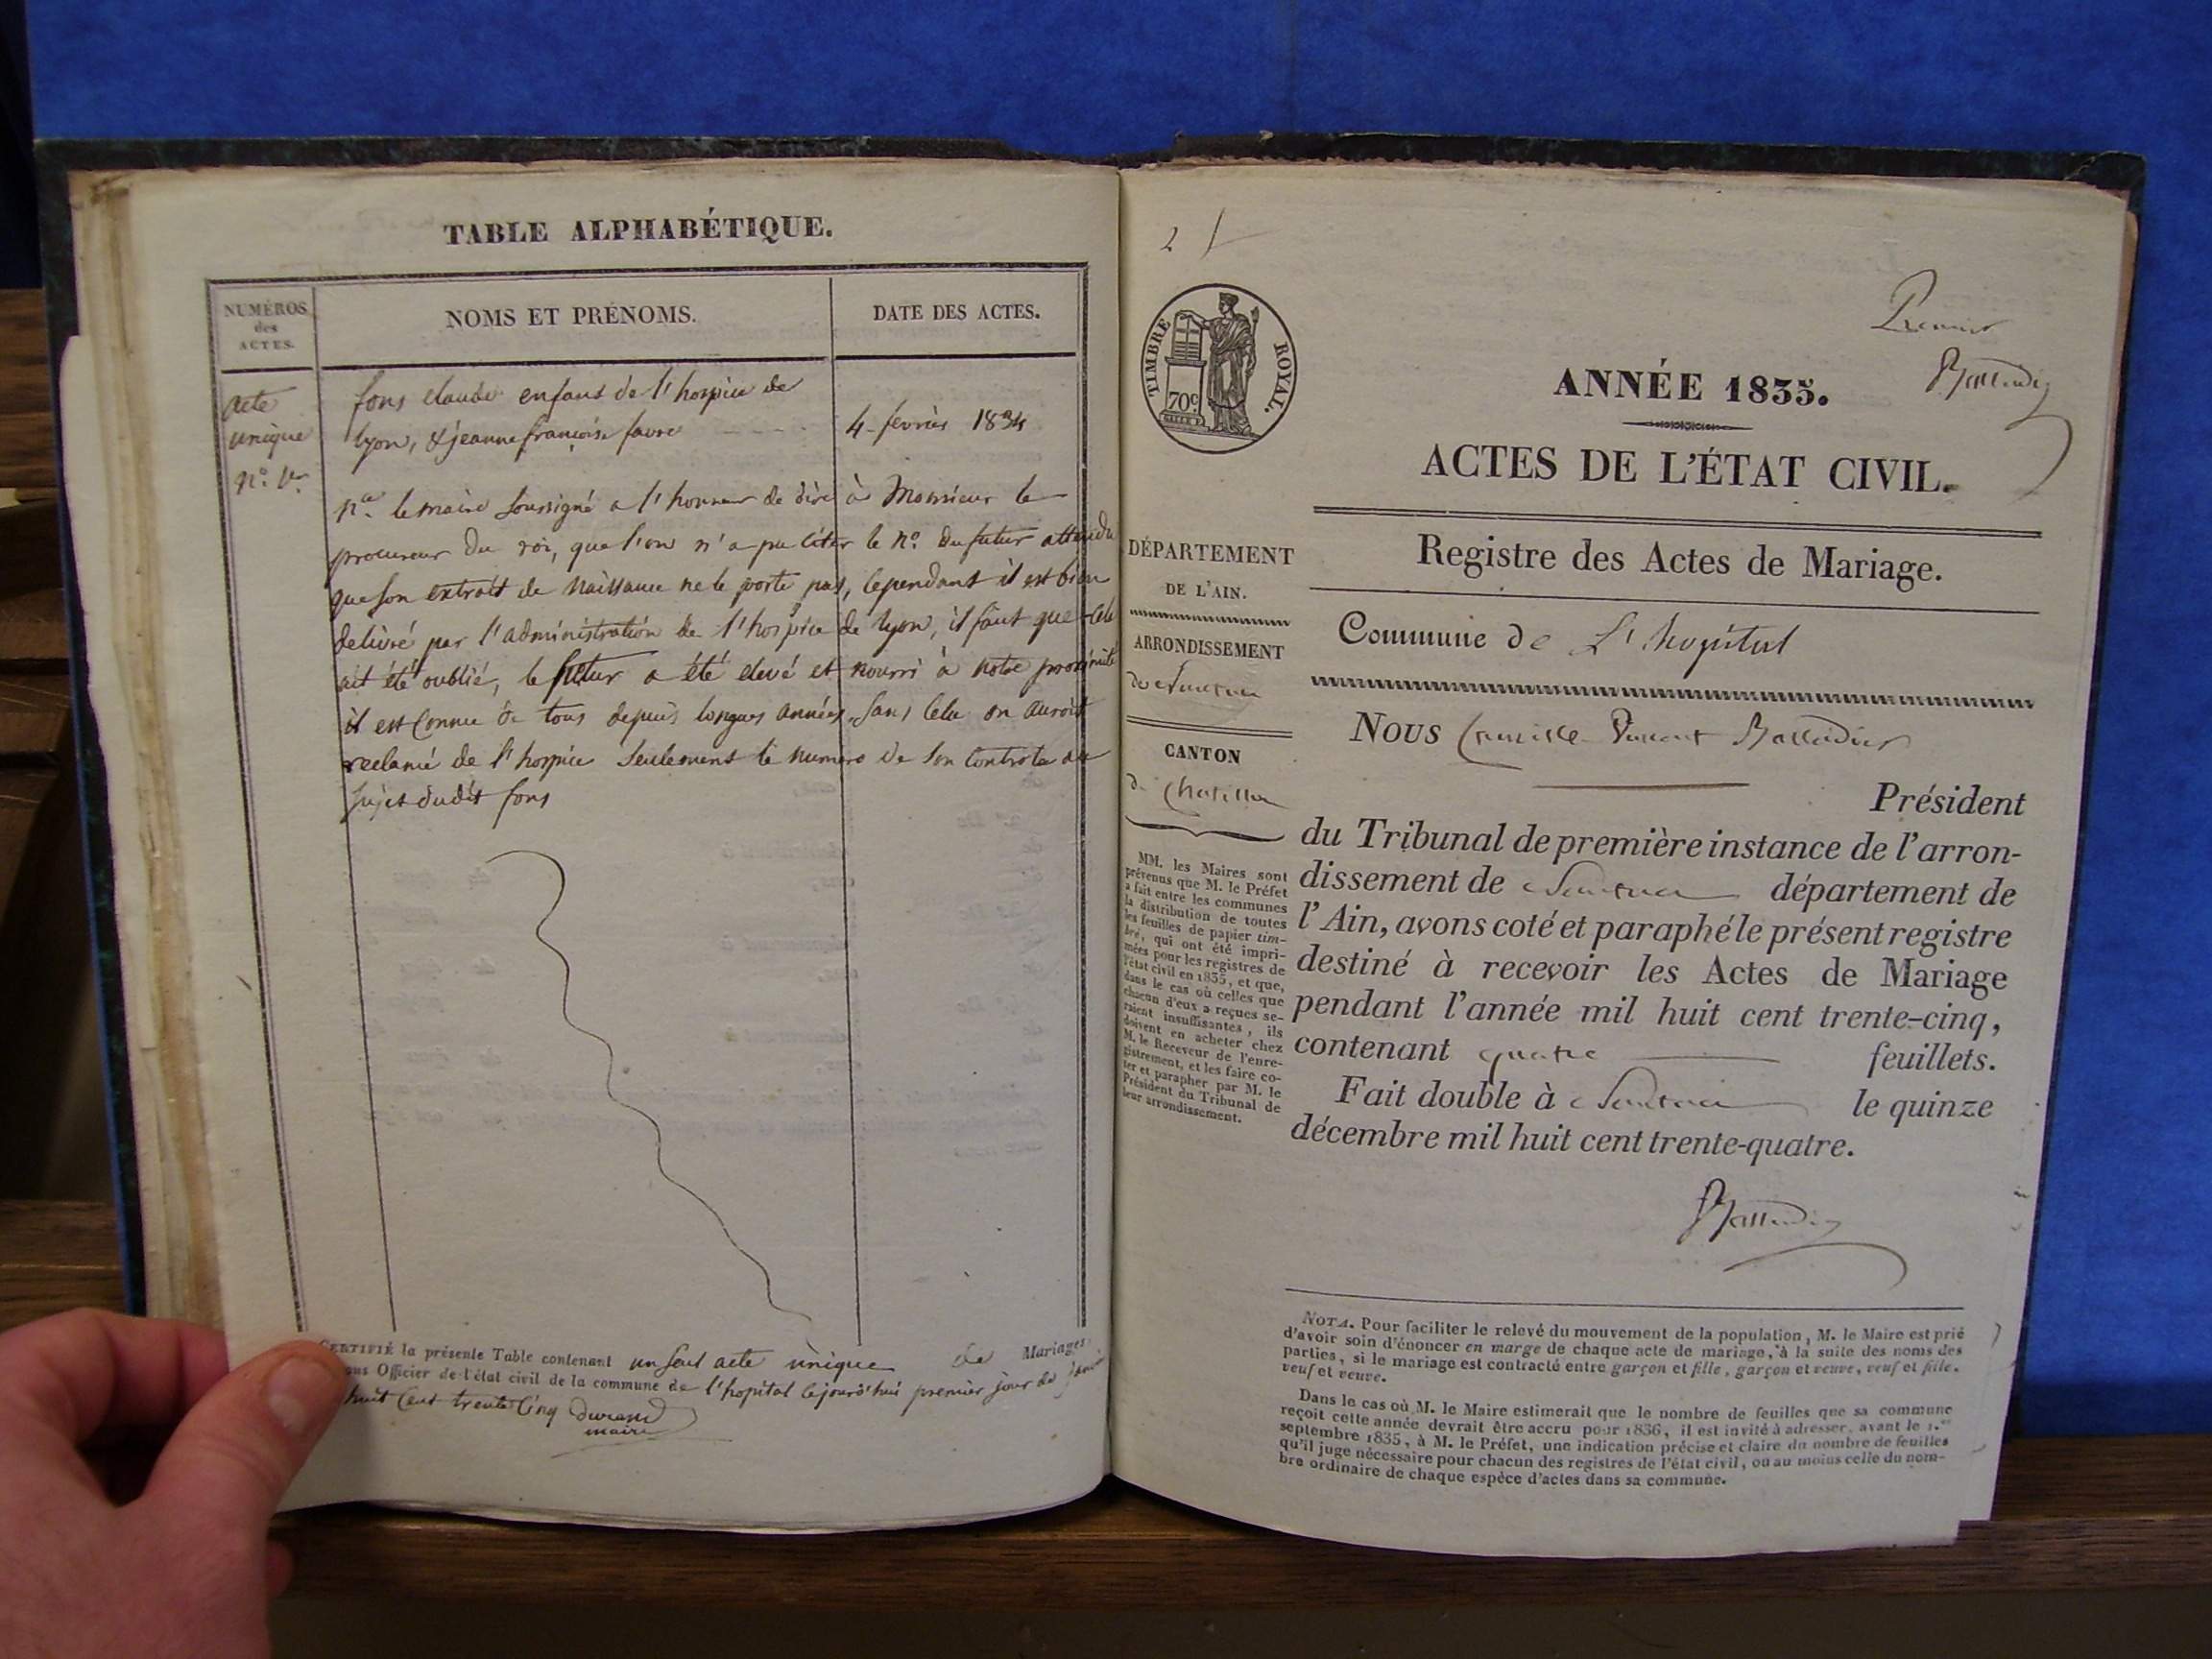 TABLE ALPHABÉTIQUE.
NUMÉROS
des
ACTES.
NOMS ET PRÉNOMS.
DATE DES ACTES.
acte
unique
n.º 1.er
fons claude enfant de l'hospice de
lyon, & jeanne françoise favre
4 fevrier 1834
n.a le maire soussigné a l'honneur de dire à Monsieur le
procureur du roi, que l'on n'a pu citer le n.º du futur attendu
que son extrait de naissance ne le porte pas, cependant il est bien
delivré par l'administration de l'hospice de lyon, il faut que cela
ait été oublié, le futur a été elevé et nourri à notre proximité
il est connu de tous depuis longues années, sans cela on auroit
reclamé de l'hospice seulement le numero de son controle au
sujet dudit fons
CERTIFIÉ la présente Table contenant un seul acte unique de Mariages
nous Officier de l'état civil de la commune de l'hopital cejourd'hui premier jour de janvier
huit cent trente cinq Durand
maire
2
Premier
Balleidier
TIMBRE ROYAL.
70c
ANNÉE 1835.
ACTES DE L'ÉTAT CIVIL.
Registre des Actes de Mariage.
Commune de L'hopital
DÉPARTEMENT
DE L'AIN.
ARRONDISSEMENT
de Nantua
CANTON
de Chatillon
MM. les Maires sont
prévenus que M. le Préfet
a fait entre les communes
la distribution de toutes
les feuilles de papier tim-
bré, qui ont été impri-
mées pour les registres de
l'état civil en 1835, et que,
dans le cas où celles que
chacun d'eux a reçues se-
raient insuffisantes, ils
doivent en acheter chez
M. le Receveur de l'enre-
gistrement, et les faire co-
ter et parapher par M. le
Président du Tribunal de
leur arrondissement.
Nous Camille Vincent Balleidier
Président
du Tribunal de première instance de l'arron-
dissement de Nantua département de
l'Ain, avons coté et paraphé le présent registre
destiné à recevoir les Actes de Mariage
pendant l'année mil huit cent trente-cinq,
contenant quatre feuillets.
Fait double à Nantua le quinze
décembre mil huit cent trente-quatre.
Balleidier
NOTA. Pour faciliter le relevé du mouvement de la population, M. le Maire est prié
d'avoir soin d'énoncer en marge de chaque acte de mariage, à la suite des noms des
parties, si le mariage est contracté entre garçon et fille, garçon et veuve, veuf et fille,
veuf et veuve.
Dans le cas où M. le Maire estimerait que le nombre de feuilles que sa commune
reçoit cette année devrait être accru pour 1836, il est invité à adresser, avant le 1.er
septembre 1835, à M. le Préfet, une indication précise et claire du nombre de feuilles
qu'il juge nécessaire pour chacun des registres de l'état civil, ou au moins celle du nom-
bre ordinaire de chaque espèce d'actes dans sa commune.